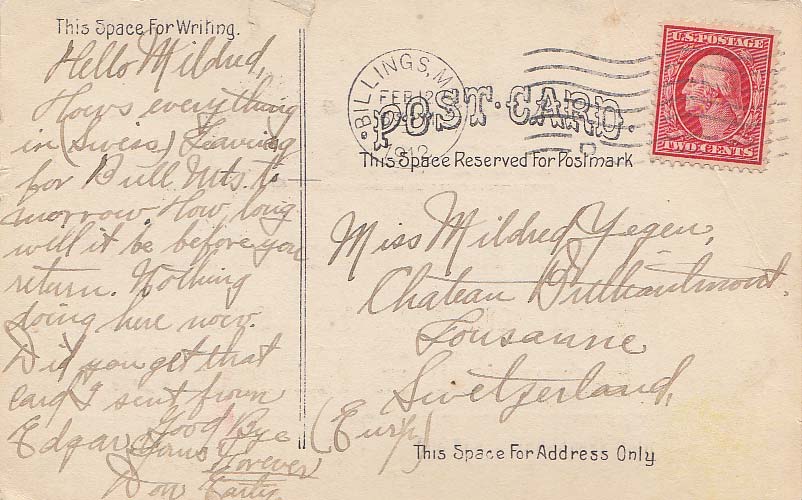 This Space For Writing.
Hello Mildred,
Hows everything
in (Swiss.) Leaving
for Bull Mts. to-
morrow. How long
will it be before you
return. Nothing
doing here now.
Did you get that
card I sent from
Edgar. Good Bye
Yours Forever
Don
BILLINGS, M
FEB 12
1912
POST CARD.
This Space Reserved For Postmark
U.S. POSTAGE
TWO CENTS
Miss Mildred Yegen,
Chateau Brilliantmont.
Lousanne
Swetzerland,
(Eurp)
This Space For Address Only